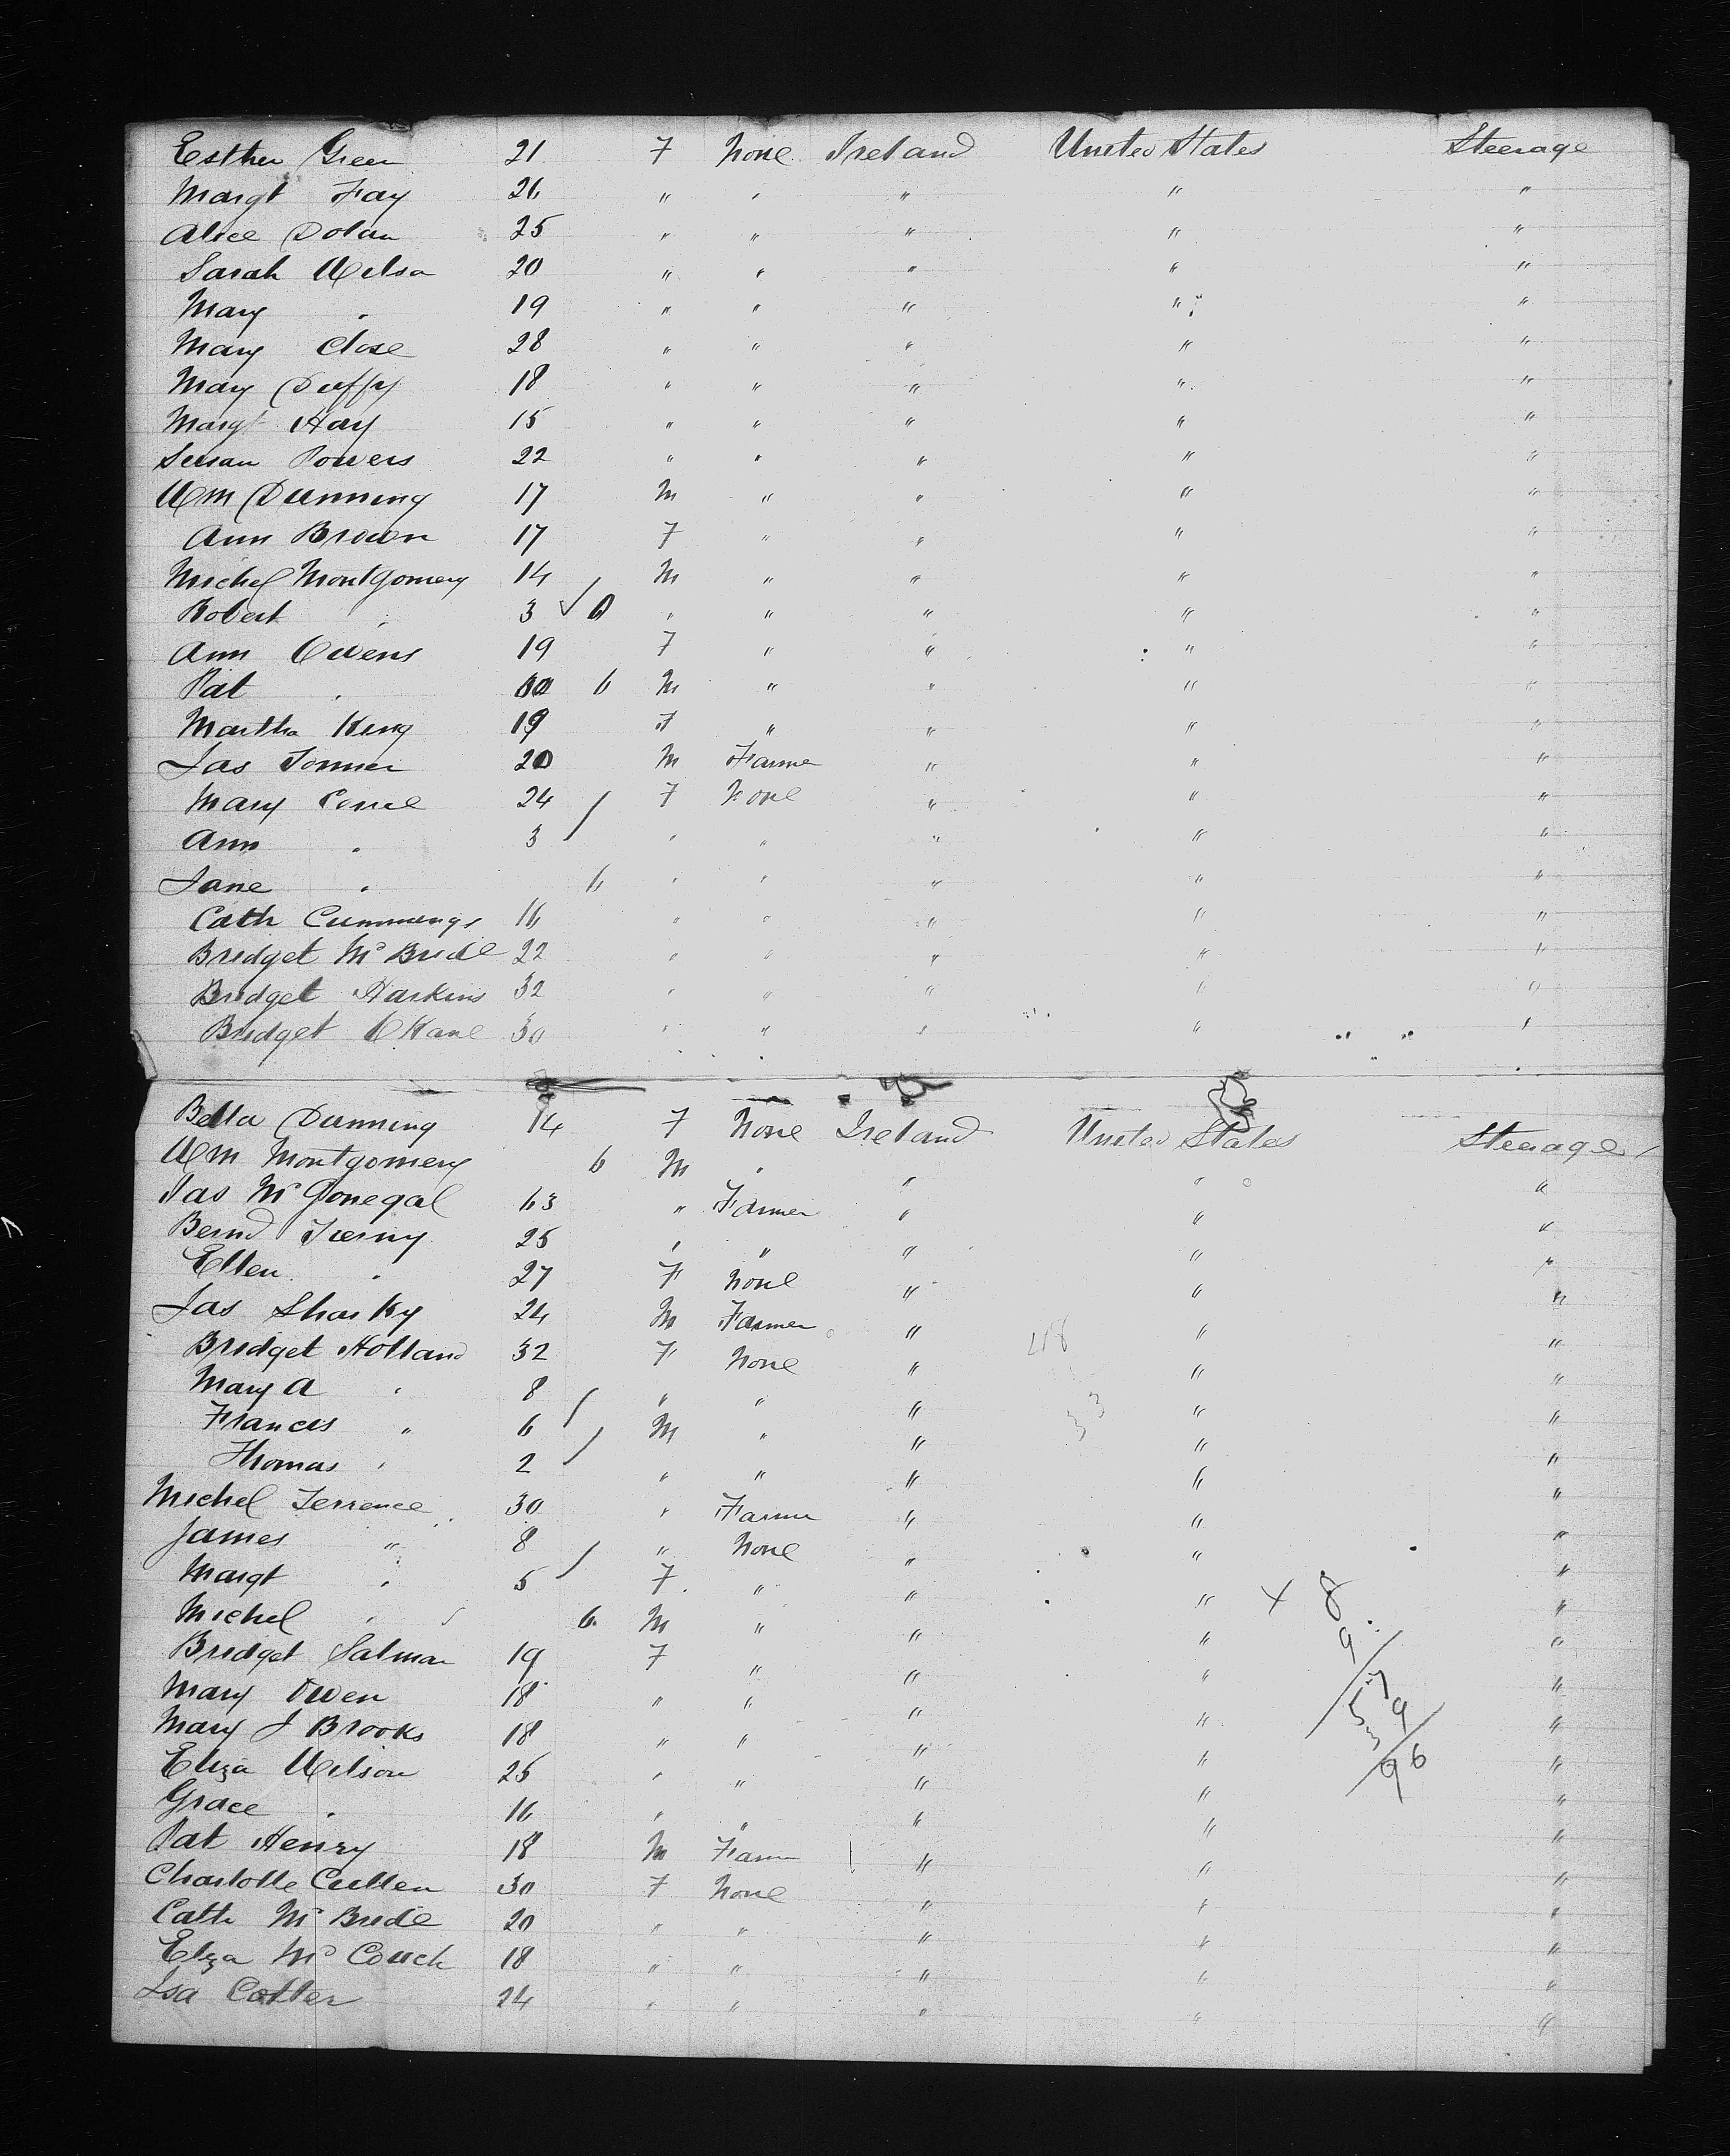 Esther Green 21 F None Ireland United States Steerage
Margt Fay 26 " " " " "
Alice Dolan 25 " " " " "
Sarah Wilson 20 " " " " "
Mary " 19 " " " " "
Mary Close 28 " " " " "
Mary Duffy 18 " " " " "
Margt Hay 15 " " " " "
Susan Powers 22 " " " " "
Wm Dunning 17 M " " " "
Ann Brown 17 F " " " "
Michel Montgomery 14 M " " " "
Robert " 3 " " " " "
Ann Owens 19 F " " " "
Pat " 6 M " " " "
Martha King 19 F " " " "
Jas 20 M Farmer " " "
Mary 24 F None " " "
Ann " 3 " " " " "
Jane " 6 " " " " "
Cath Cummings 16 " " " " "
Bridget McBride 22 " " " " "
Bridget Harkins 32 " " " " "
Bridget OKane 30 " " " " "
Bella Dunning 14 F None Ireland United States Steerage
Wm Montgomery 6 M " " " "
Jas McGonegal 63 " Farmer " " "
Bernd Tierny 25 " " " " "
Ellen " 27 F None " " "
Jas Sharky 24 M Farmer " " "
Bridget Holland 32 F None " " "
Mary A " 8 " " " " "
Francis " 6 M " " " "
Thomas " 2 " " " " "
Michel Terrence 30 " Farmer " " "
James " 8 " None " " "
Margt " 5 F " " " "
Michel " 6 M " " " "
Bridget Salmon 19 F " " " "
Mary Owen 18 " " " " "
Mary J Brooks 18 " " " " "
Eliza Wilson 25 " " " " "
Grace " 16 " " " " "
Pat Henry 18 M Farmer " " "
Charlotte Cullen 30 F None " " "
Cath McBride 20 " " " " "
Eliza McCouch 18 " " " " "
Isa Cotter 24 " " " " "